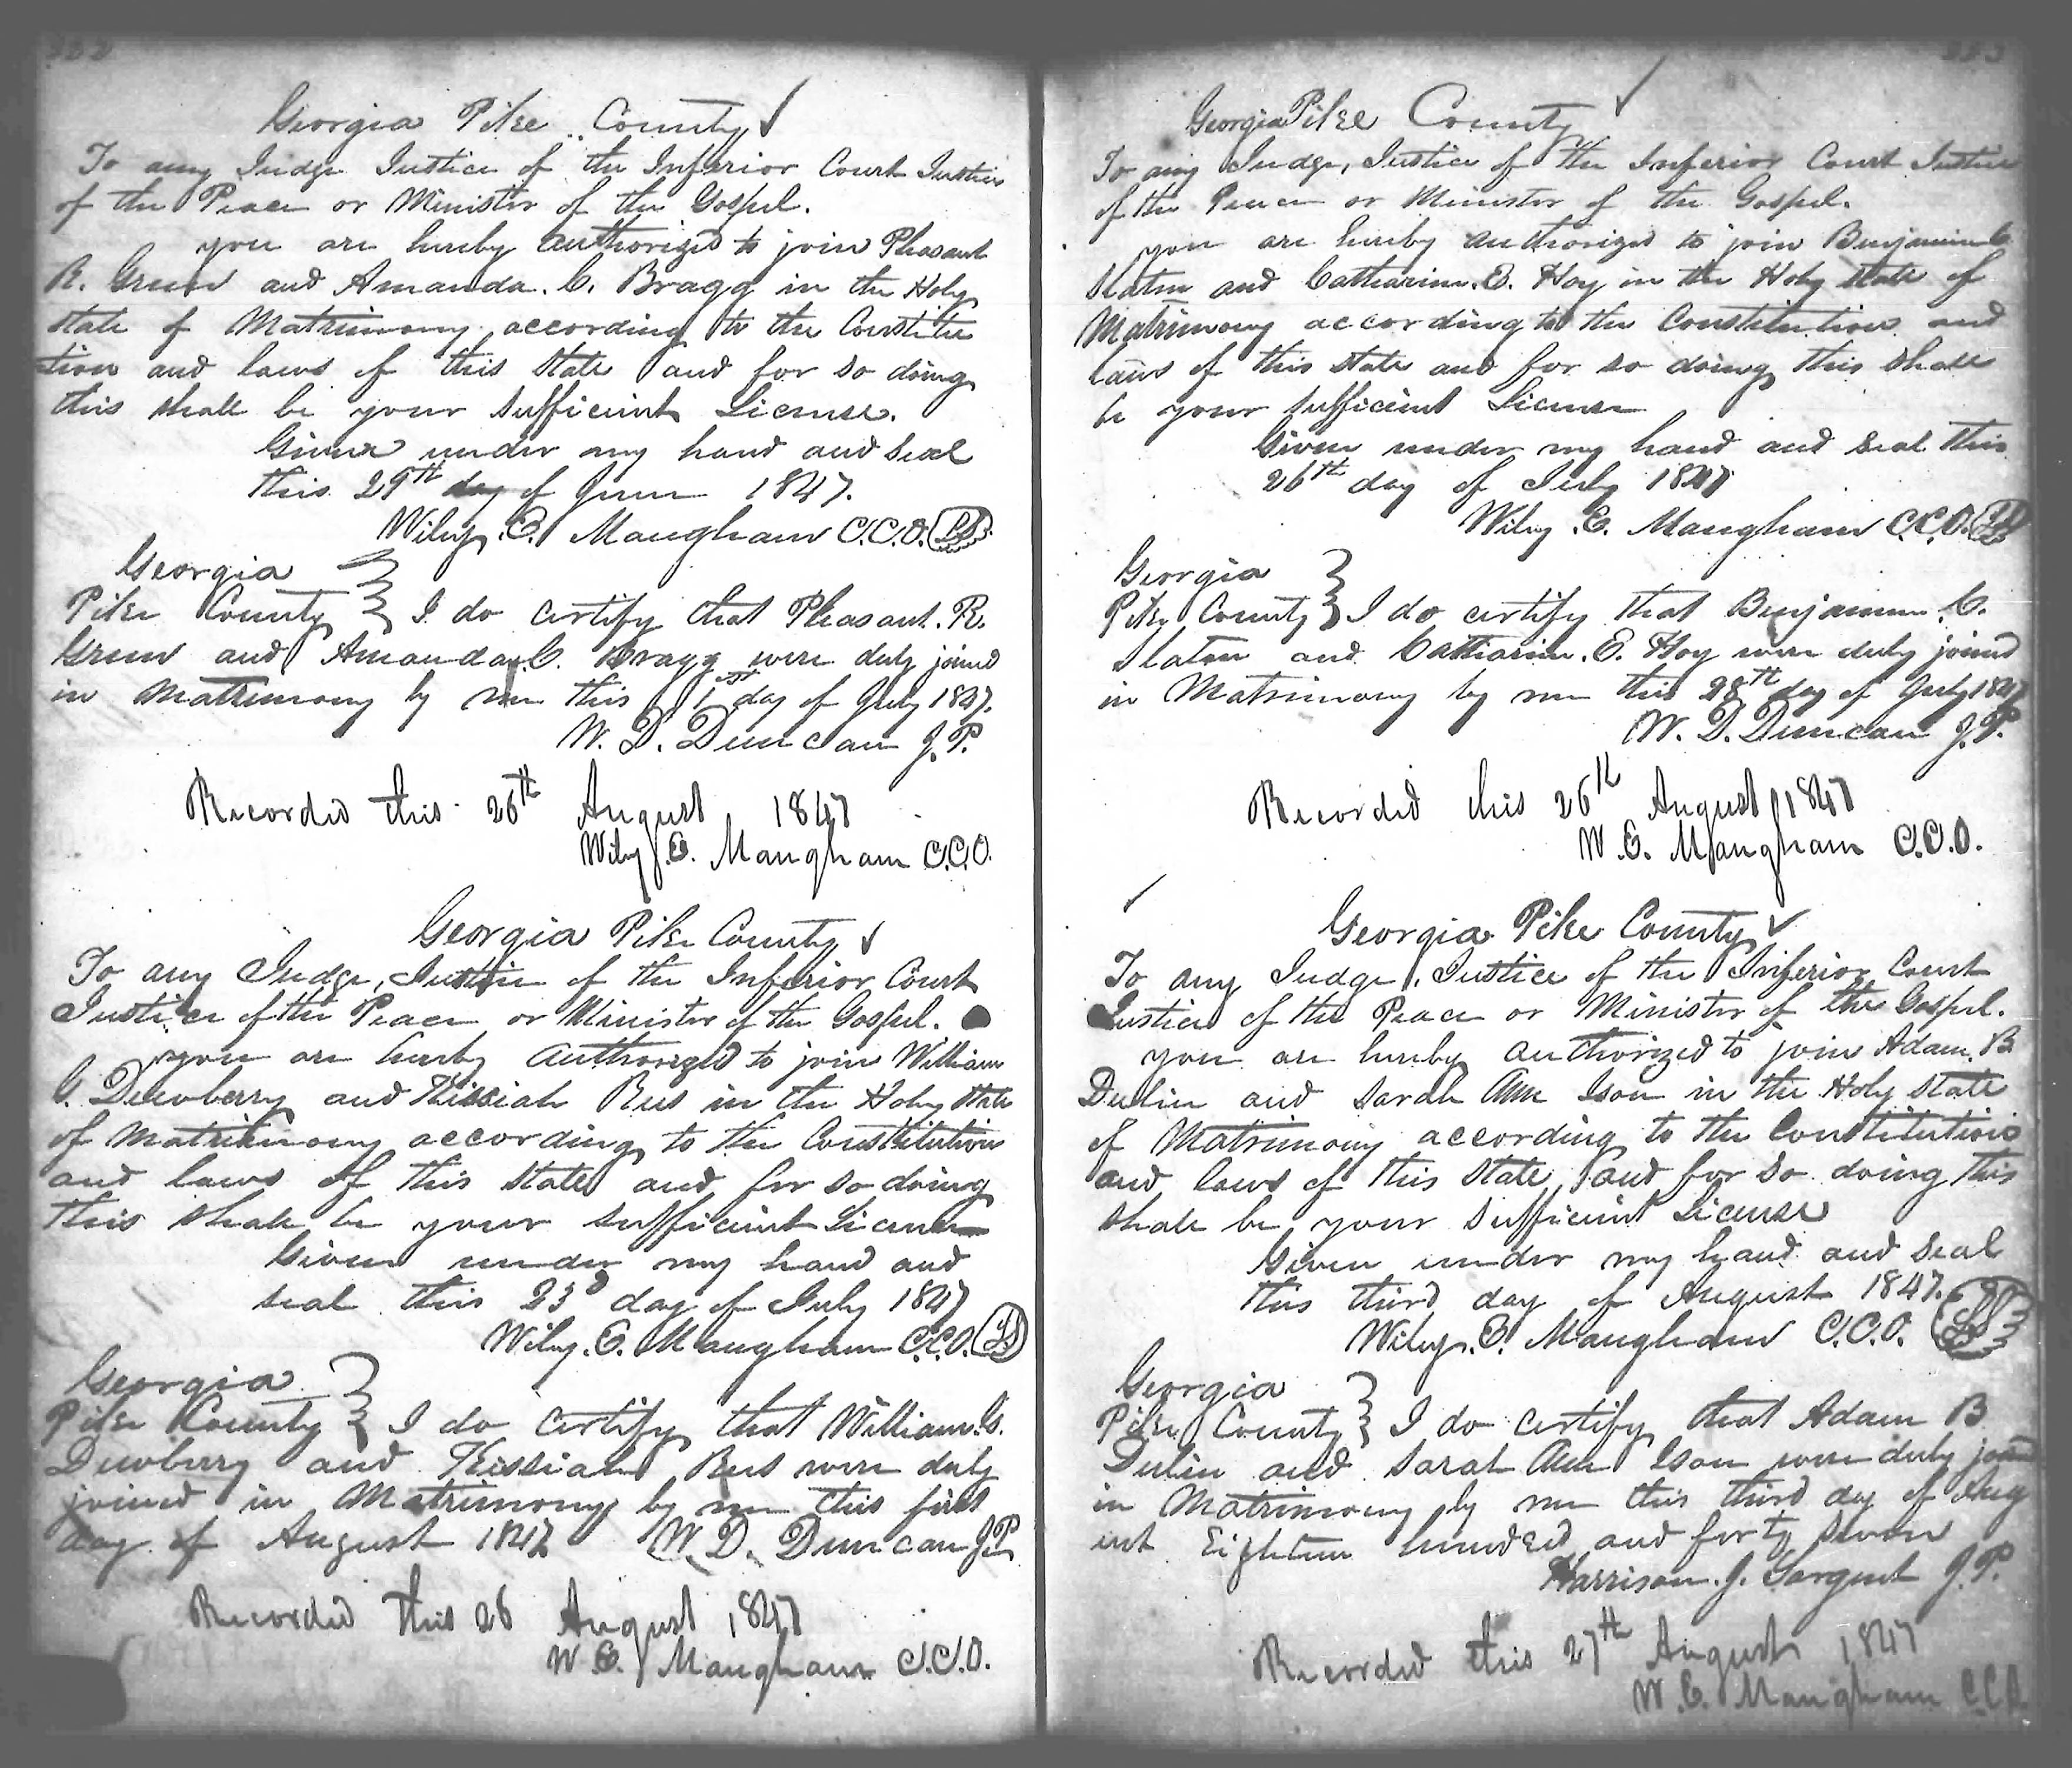 Georgia Pike County
To any Judge Justice of the Inferior Court Justice
of the Peace or Minister of the Gospel.
you are hereby authorized to join Pleasant
R. Green and Amanda. C. Bragg in the Holy
state of Matrimony according to the Constitu
tion and laws of this State and for so doing
this shall be your sufficient License.
Given under my hand and seal
this 29th day of June 1847.
Wiley. E. Mangham C.C.O. LS
Georgia
Pike County } I do certify that Pleasant. R.
Green and Amanda. C. Bragg were duly joined
in Matrimony by me this 1st day of July 1847.
W. D. Duncan J.P.
Recorded this 26th August 1847
Wiley E. Mangham C.C.O.
Georgia Pike County
To any Judge, Justice of the Inferior Court
Justice of the Peace or Minister of the Gospel.
you are hereby authorized to join William
G. Dewberry and Kissiah Rees in the Holy State
of Matrimony according to the Constitution
and laws of this State and for so doing
this shall be your sufficient License
Given under my hand and
seal this 23d day of July 1847
Wiley. E. Mangham C.C.O. LS
Georgia
Pike County } I do certify that William. G.
Dewberry and Kissiah Rees were duly
joined in Matrimony by me this first
day of August 1847 W. D. Duncan J.P.
Recorded this 26 August 1847
W. E. Mangham C.C.O.
Georgia Pike County
To any Judge, Justice of the Inferior Court Justice
of the Peace or Minister of the Gospel.
you are hereby authorized to join Benjamin C.
Slaton and Catharine. E. Hoy in the Holy State of
Matrimony according to the Constitution and
laws of this State and for so doing this shall
be your sufficient License
Given under my hand and seal this
26th day of July 1847
Wiley. E. Mangham C.C.O. LS
Georgia
Pike County } I do certify that Benjamin. C.
Slaton and Catharine. E. Hoy were duly joined
in Matrimony by me this 28th day of July 1847
W. D. Duncan J.P.
Recorded this 26th August 1847
W. E. Mangham C.C.O.
Georgia Pike County
To any Judge, Justice of the Inferior Court
Justice of the Peace or Minister of the Gospel.
you are hereby authorized to join Adam. B
Dulin and Sarah Ann Ison in the Holy State
of Matrimony according to the Constitution
and laws of this State, and for so doing this
shall be your sufficient License
Given under my hand and seal
this third day of August 1847.
Wiley. E. Mangham C.C.O. LS
Georgia
Pike County } I do certify that Adam B
Dulin and Sarah Ann Ison were duly joined
in Matrimony by me this third day of Aug
ust Eighteen hundred and forty seven
Harrison. J. Sargent J.P.
Recorded this 27th August 1847
W. E. Mangham C.C.O.